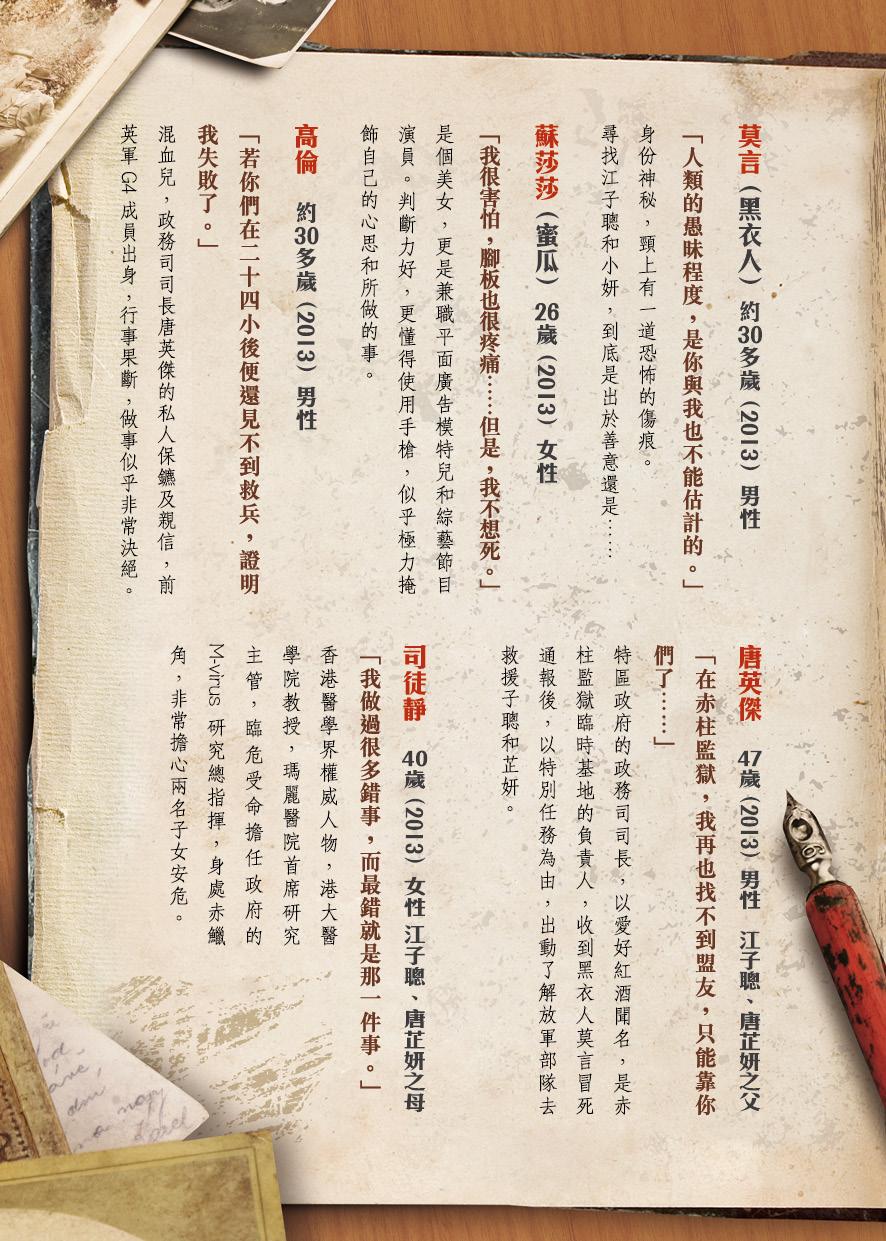 莫言（黑衣人） 約30多歲（2013） 男性
「人類的愚昧程度，是你與我也不能估計的。」
身份神秘，頸上有一道恐怖的傷痕。
尋找江子聰和小妍，到底是出於善意還是……
蘇莎莎（蜜瓜） 26歲（2013） 女性
「我很害怕，腳板也很疼痛……但是，我不想死。」
是個美女，更是兼職平面廣告模特兒和綜藝節目
演員。判斷力好，更懂得使用手槍，似乎極力掩
飾自己的心思和所做的事。
高倫 約30多歲（2013） 男性
「若你們在二十四小後便還見不到救兵，證明
我失敗了。」
混血兒，政務司司長唐英傑的私人保鑣及親信，前
英軍 G4 成員出身，行事果斷，做事似乎非常決絕。
唐英傑 47歲（2013） 男性 江子聰、唐芷妍之父
「在赤柱監獄，我再也找不到盟友，只能靠你
們了……」
特區政府的政務司司長，以愛好紅酒聞名，是赤
柱監獄臨時基地的負責人，收到黑衣人莫言冒死
通報後，以特別任務為由，出動了解放軍部隊去
救援子聰和芷妍。
司徒靜 40歲（2013） 女性 江子聰、唐芷妍之母
「我做過很多錯事，而最錯就是那一件事。」
香港醫學界權威人物，港大醫
學院教授，瑪麗醫院首席研究
主管，臨危受命擔任政府的
M-virus 研究總指揮，身處赤鱲
角，非常擔心兩名子女安危。